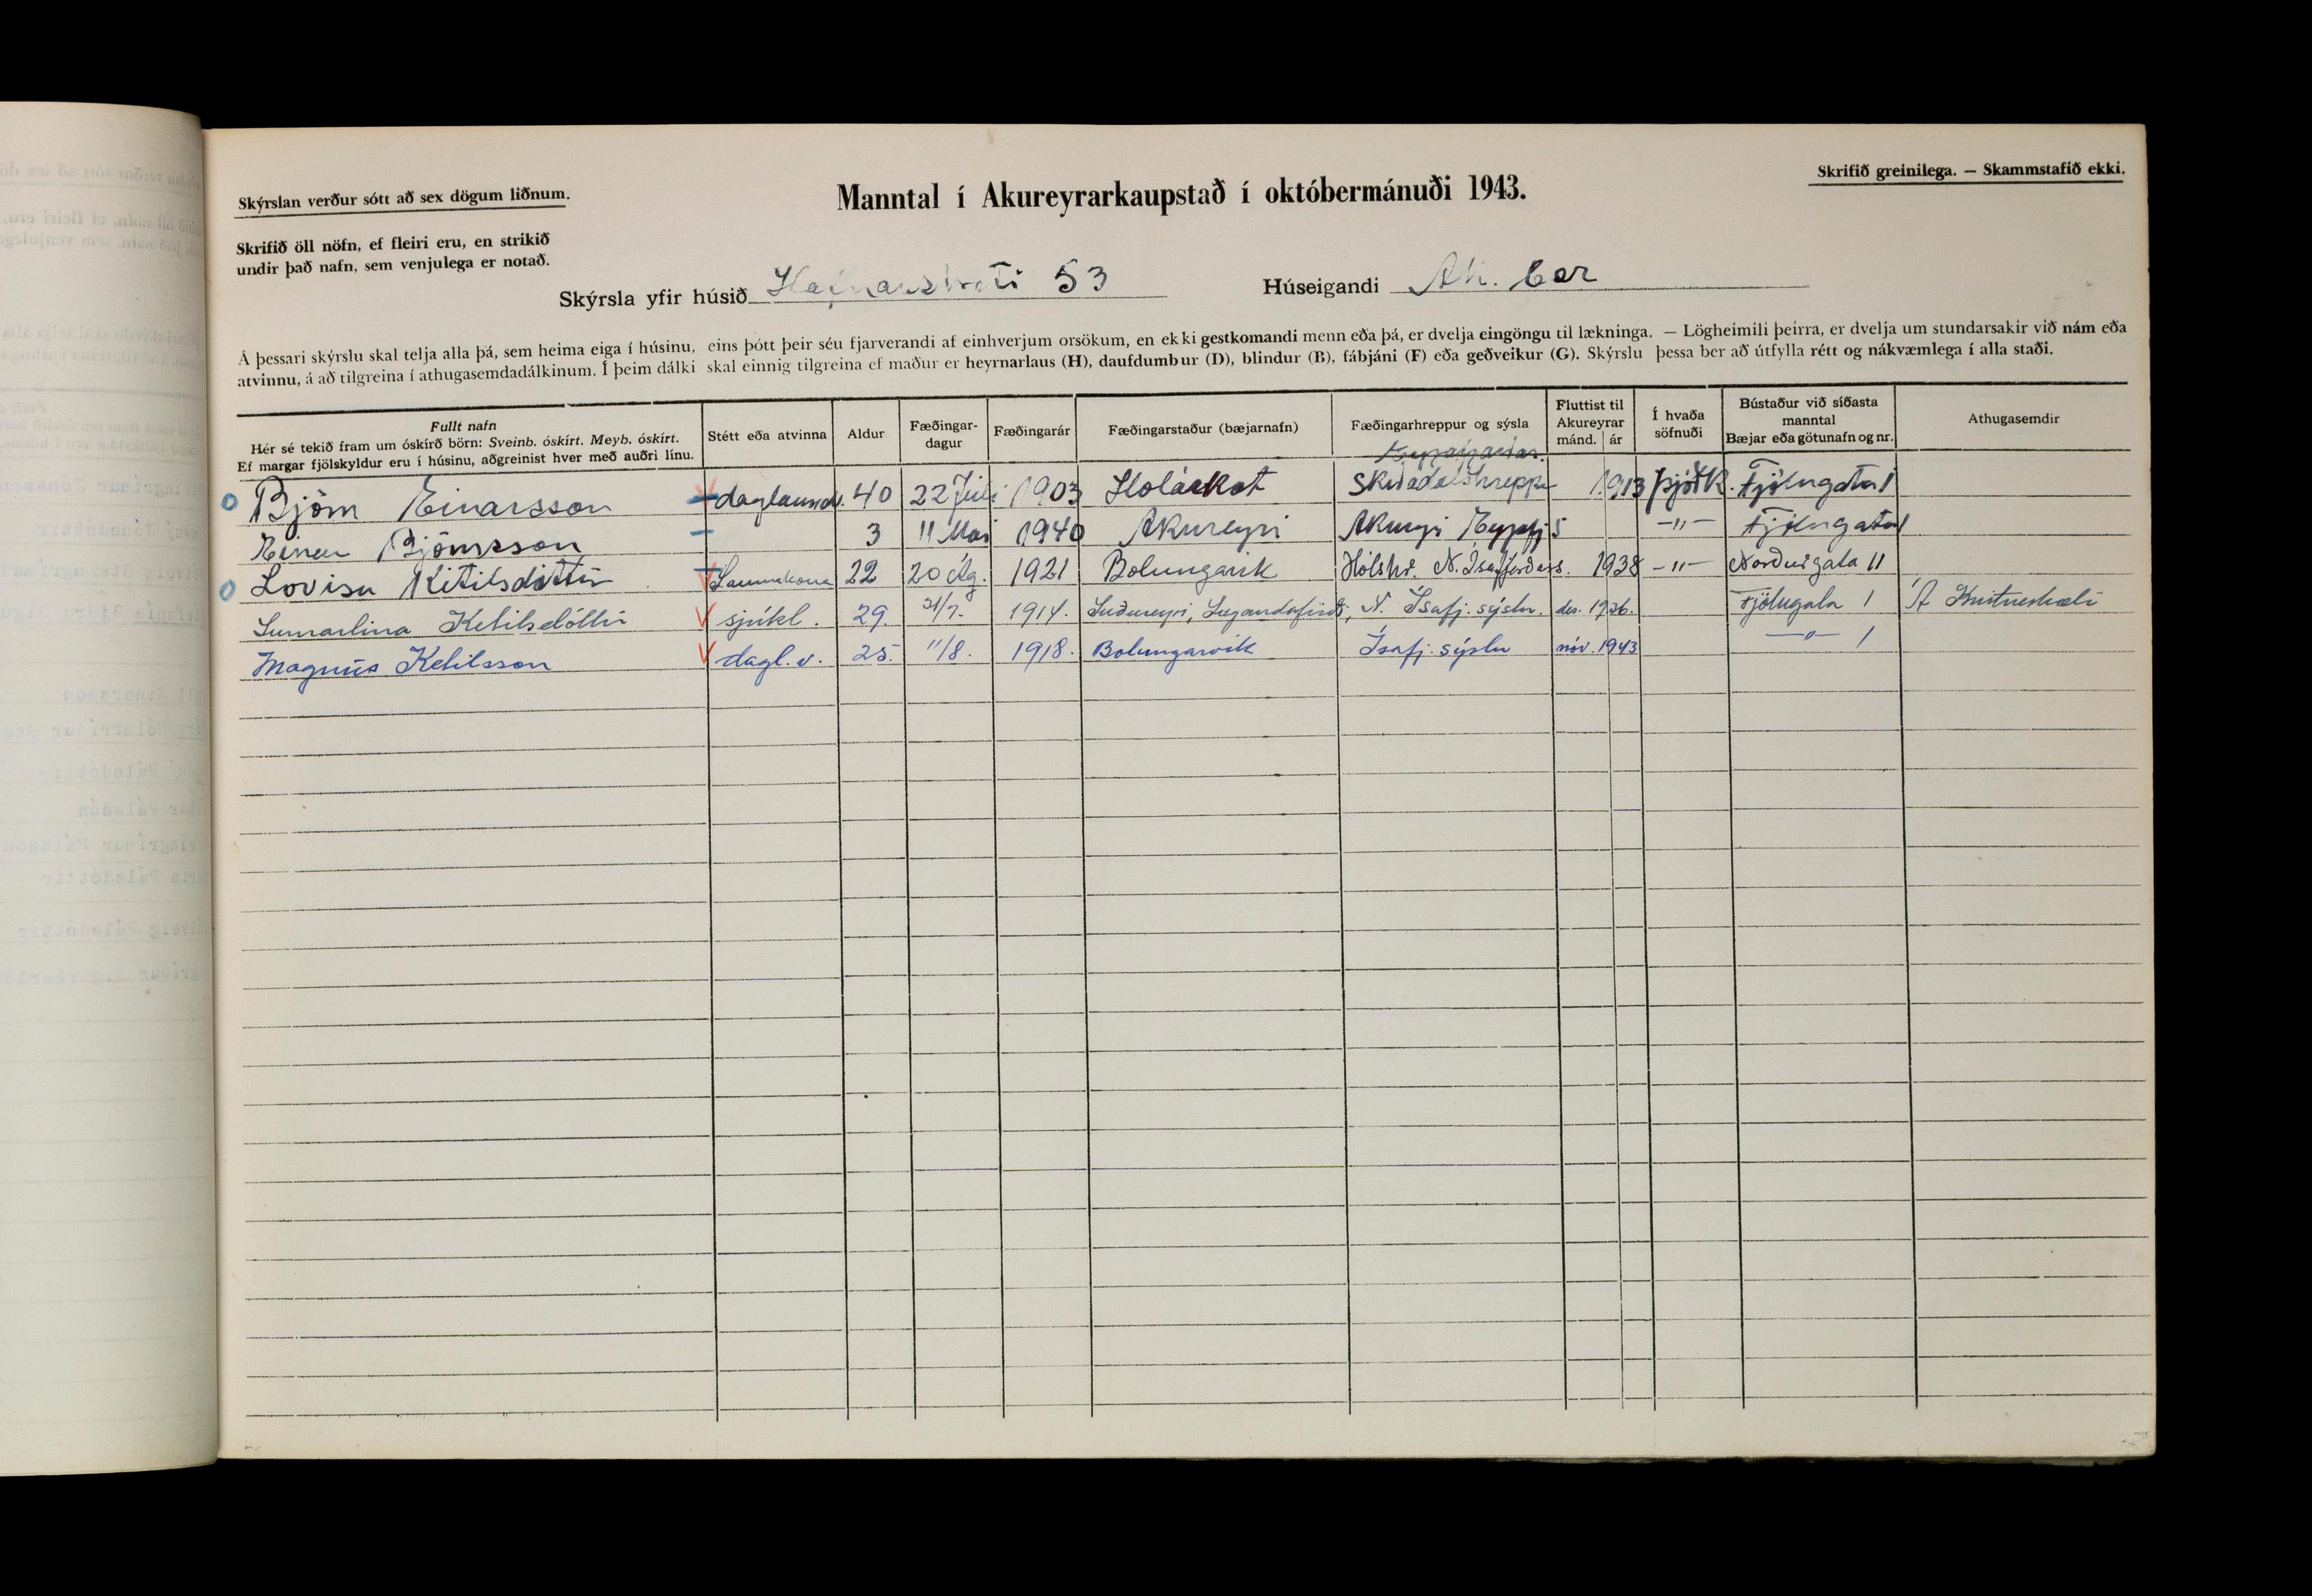 Skýrslan verður sótt að sex dögum liðnum.
Manntal í Akureyrarkaupstað í októbermánuði 1943.
Skrifið greinilega. — Skammstafið ekki.
Skrifið öll nöfn, ef fleiri eru, en strikið
undir það nafn, sem venjulega er notað.
Skýrsla yfir húsið Hafnarstræti 53 Húseigandi Ak. bær
Á þessari skýrslu skal telja alla þá, sem heima eiga í húsinu, eins þótt þeir séu fjarverandi af einhverjum orsökum, en ekki gestkomandi menn eða þá, er dvelja eingöngu til lækninga. — Lögheimili þeirra, er dvelja um stundarsakir við nám eða
atvinnu, á að tilgreina í athugasemdadálkinum. Í þeim dálki skal einnig tilgreina ef maður er heyrnarlaus (H), daufdumbur (D), blindur (B), fábjáni (F) eða geðveikur (G). Skýrslu þessa ber að útfylla rétt og nákvæmlega í alla staði.
Fullt nafn
Hér sé tekið fram um óskírð börn: Sveinb. óskírt. Meyb. óskírt.
Ef margar fjölskyldur eru í húsinu, aðgreinist hver með auðri línu.
Stétt eða atvinna
Aldur
Fæðingar-
dagur
Fæðingarár
Fæðingarstaður (bæjarnafn)
Fæðingarhreppur og sýsla
Fluttist til
Akureyrar
mánd. ár
Í hvaða
söfnuði
Bústaður við síðasta
manntal
Bæjar eða götunafn og nr.
Athugasemdir
Björn Einarsson daglaunav. 40 22 Júlí 1903 Holárkot Skíðadalshreppi 1913 Þjóðk. Fjólugata 1
Einar Björnsson 3 11 Mai 1940 Akureyri Akureyri Eyjafj.s -"- Fjólugata 1
Lovisa Ketilsdóttir Saumakona 22 20 Ág. 1921 Bolungarvik Hólshr. N. Ísafjarðars. 1938 -"- Norðurgata 11
Sumarlina Ketilsdóttir sjúkl. 29. 21/7. 1914. Suðureyri, Súgandafirði, N. Ísafj. sýslu. des. 1936. Fjólugata 1 Á Kristneshæli
Magnús Ketilsson dagl.v. 25. 11/8. 1918. Bolungarvík Ísafj. sýslu nóv. 1943 -"- 1